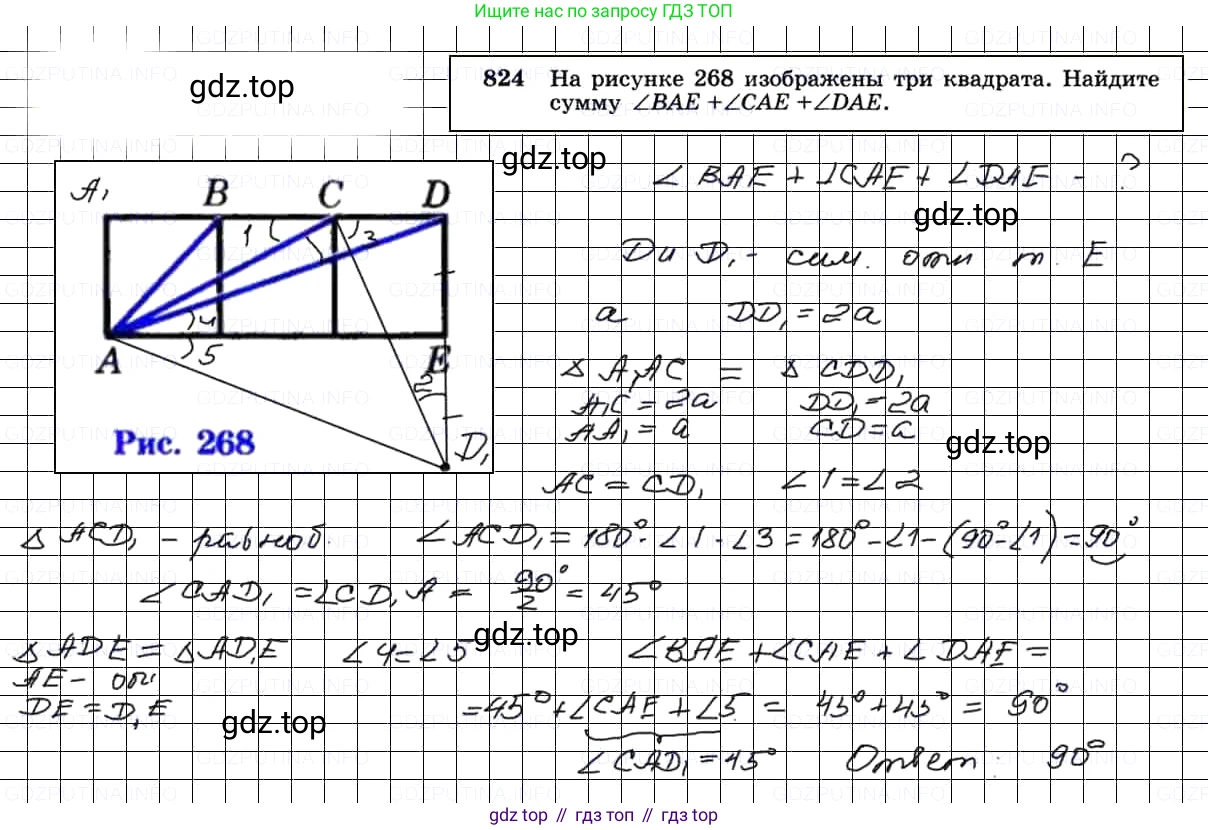 Ищите нас по запросу ГДЗ ТОП
gdz.top
824 На рисунке 268 изображены три квадрата. Найдите
сумму ∠BAE +∠CAE +∠DAE.
gdz.top
∠BAE + ∠CAE + ∠DAE - ?
gdz.top
A₁ B C D
1 3
4
5
A E
2
D₁
Рис. 268
D и D₁ - сим. отн т. E
a DD₁ = 2a
△ A₁AC = △ CDD₁
A₁C = 2a DD₁ = 2a
AA₁ = a CD = a
gdz.top
AC = CD₁ ∠1 = ∠2
△ ACD₁ - равноб. ∠ACD₁ = 180° - ∠1 - ∠3 = 180° - ∠1 - (90° - ∠1) = 90°
∠CAD₁ = ∠CD₁A = 90°/2 = 45°
gdz.top
△ADE = △AD₁E ∠4 = ∠5 ∠BAE + ∠CAE + ∠DAE =
AE - общ
DE = D₁E
gdz.top
= 45° + ∠CAE + ∠5 = 45° + 45° = 90°
∠CAD₁ = 45° Ответ: 90°
gdz top // гдз топ // gdz top
GDZPUTINA.INFO